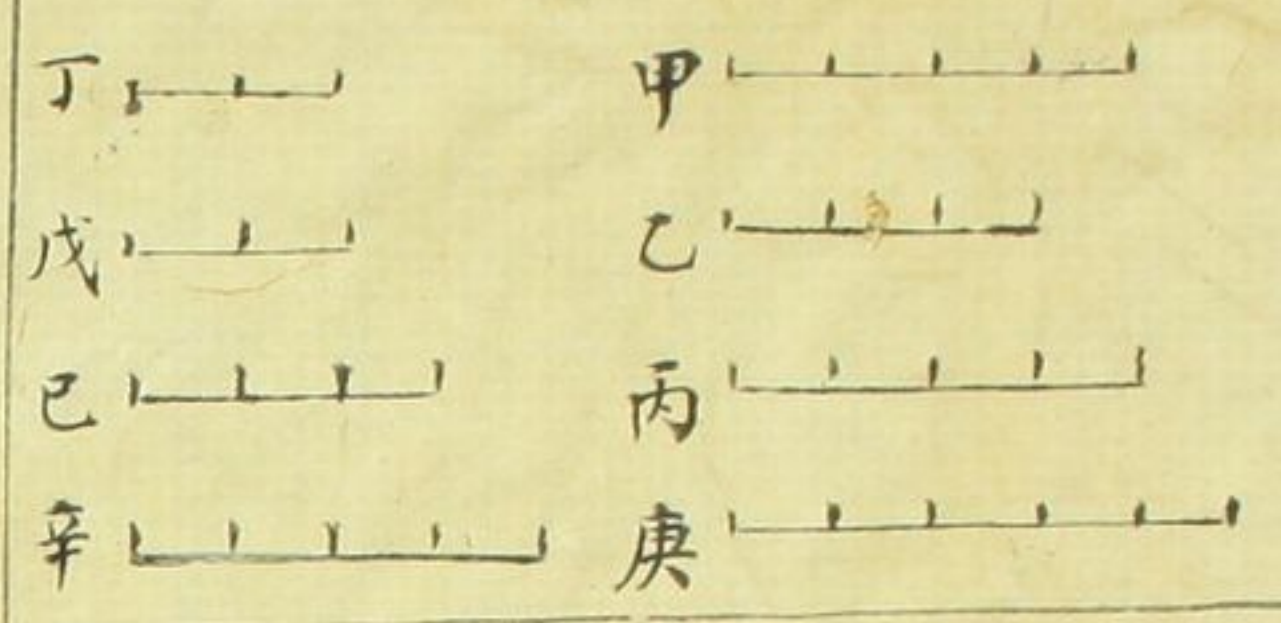 甲
乙
丙
庚
丁
戊
己
辛